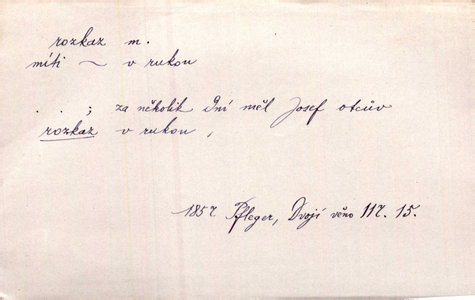 rozkaz m.
míti ~ v rukou
. . ; za několik dní měl Josef otcův
rozkaz v rukou,
1857 Pfleger, Dvojí věno 117. 15.